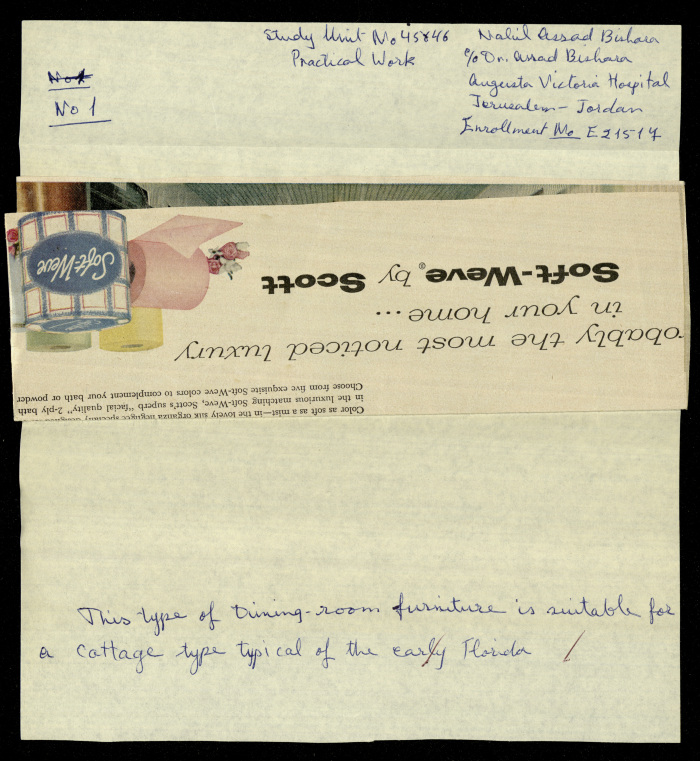 Study Unit No 45846
Practical Work
Nabil Assad Bishara
c/o Dr. Assad Bishara
Augusta Victoria Hospital
Jerusalem - Jordan
Enrollment No E21517
No 1
No 1
Soft-Weve
Soft-Weve,® by Scott
in your home...
obably the most noticed luxury
Choose from five exquisite Soft-Weve colors to complement your bath or powder
in the luxurious matching Soft-Weve, Scott's superb "facial quality" 2-ply bath
Color as soft as a mist—in the lovely silk organza negligee specially
This type of Dining-room furniture is suitable for
a cottage type typical of the early Florida